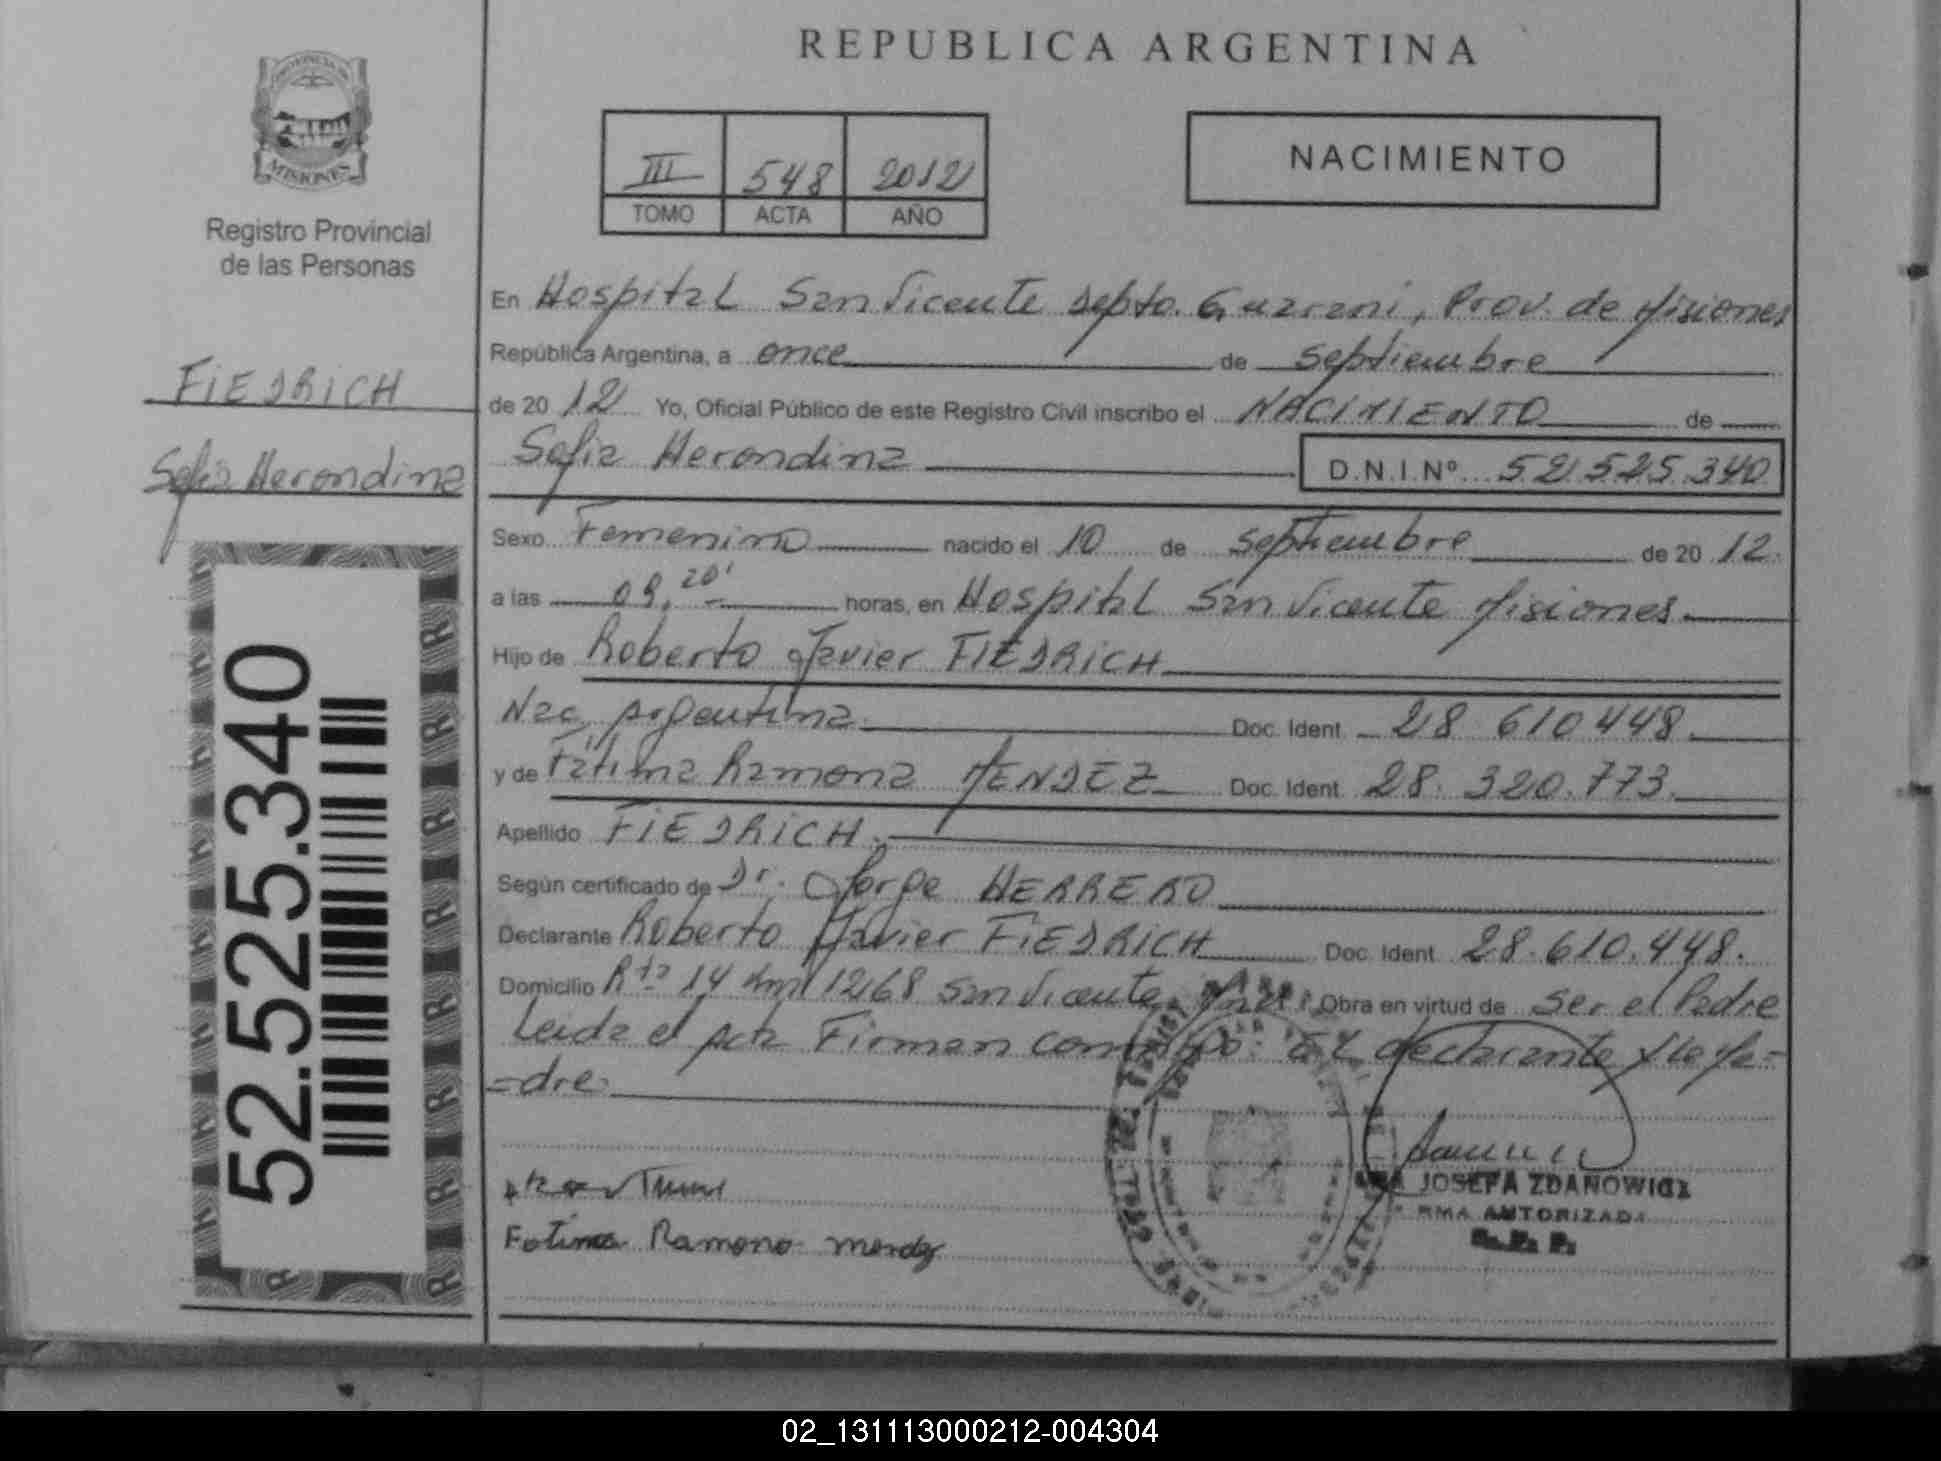 REPUBLICA ARGENTINA
PROVINCIA DE
MISIONES
Registro Provincial
de las Personas
FIEDRICH
Sofia Herondina
52.525.340
III 548 2012
TOMO ACTA AÑO
NACIMIENTO
En Hospital San Vicente Depto. Guarani, Prov. de Misiones
República Argentina, a once de septiembre
de 20 12 Yo, Oficial Público de este Registro Civil inscribo el NACIMIENTO de
Sofia Herondina D.N.I.Nº 52.525.340
Sexo Femenino nacido el 10 de septiembre de 20 12.
a las 09,20' horas, en Hospital San Vicente Misiones.
Hijo de Roberto Javier FIEDRICH
Nac. Argentina. Doc. Ident. 28 610 448.
y de Fátima Ramona MENDEZ Doc. Ident. 28.320.773.
Apellido FIEDRICH.
Según certificado de Dr. Jorge HERRERO
Declarante Roberto Javier FIEDRICH Doc. Ident. 28.610.448.
Domicilio Rta 14 km 1268 San Vicente Obra en virtud de ser el Padre
Leida el Acta Firman conmigo: El declarante y la Ma=
=dre.
Fatima Ramona mendez
JOSEFA ZDANOWICZ
FIRMA AUTORIZADA
R. P. P.
02_131113000212-004304